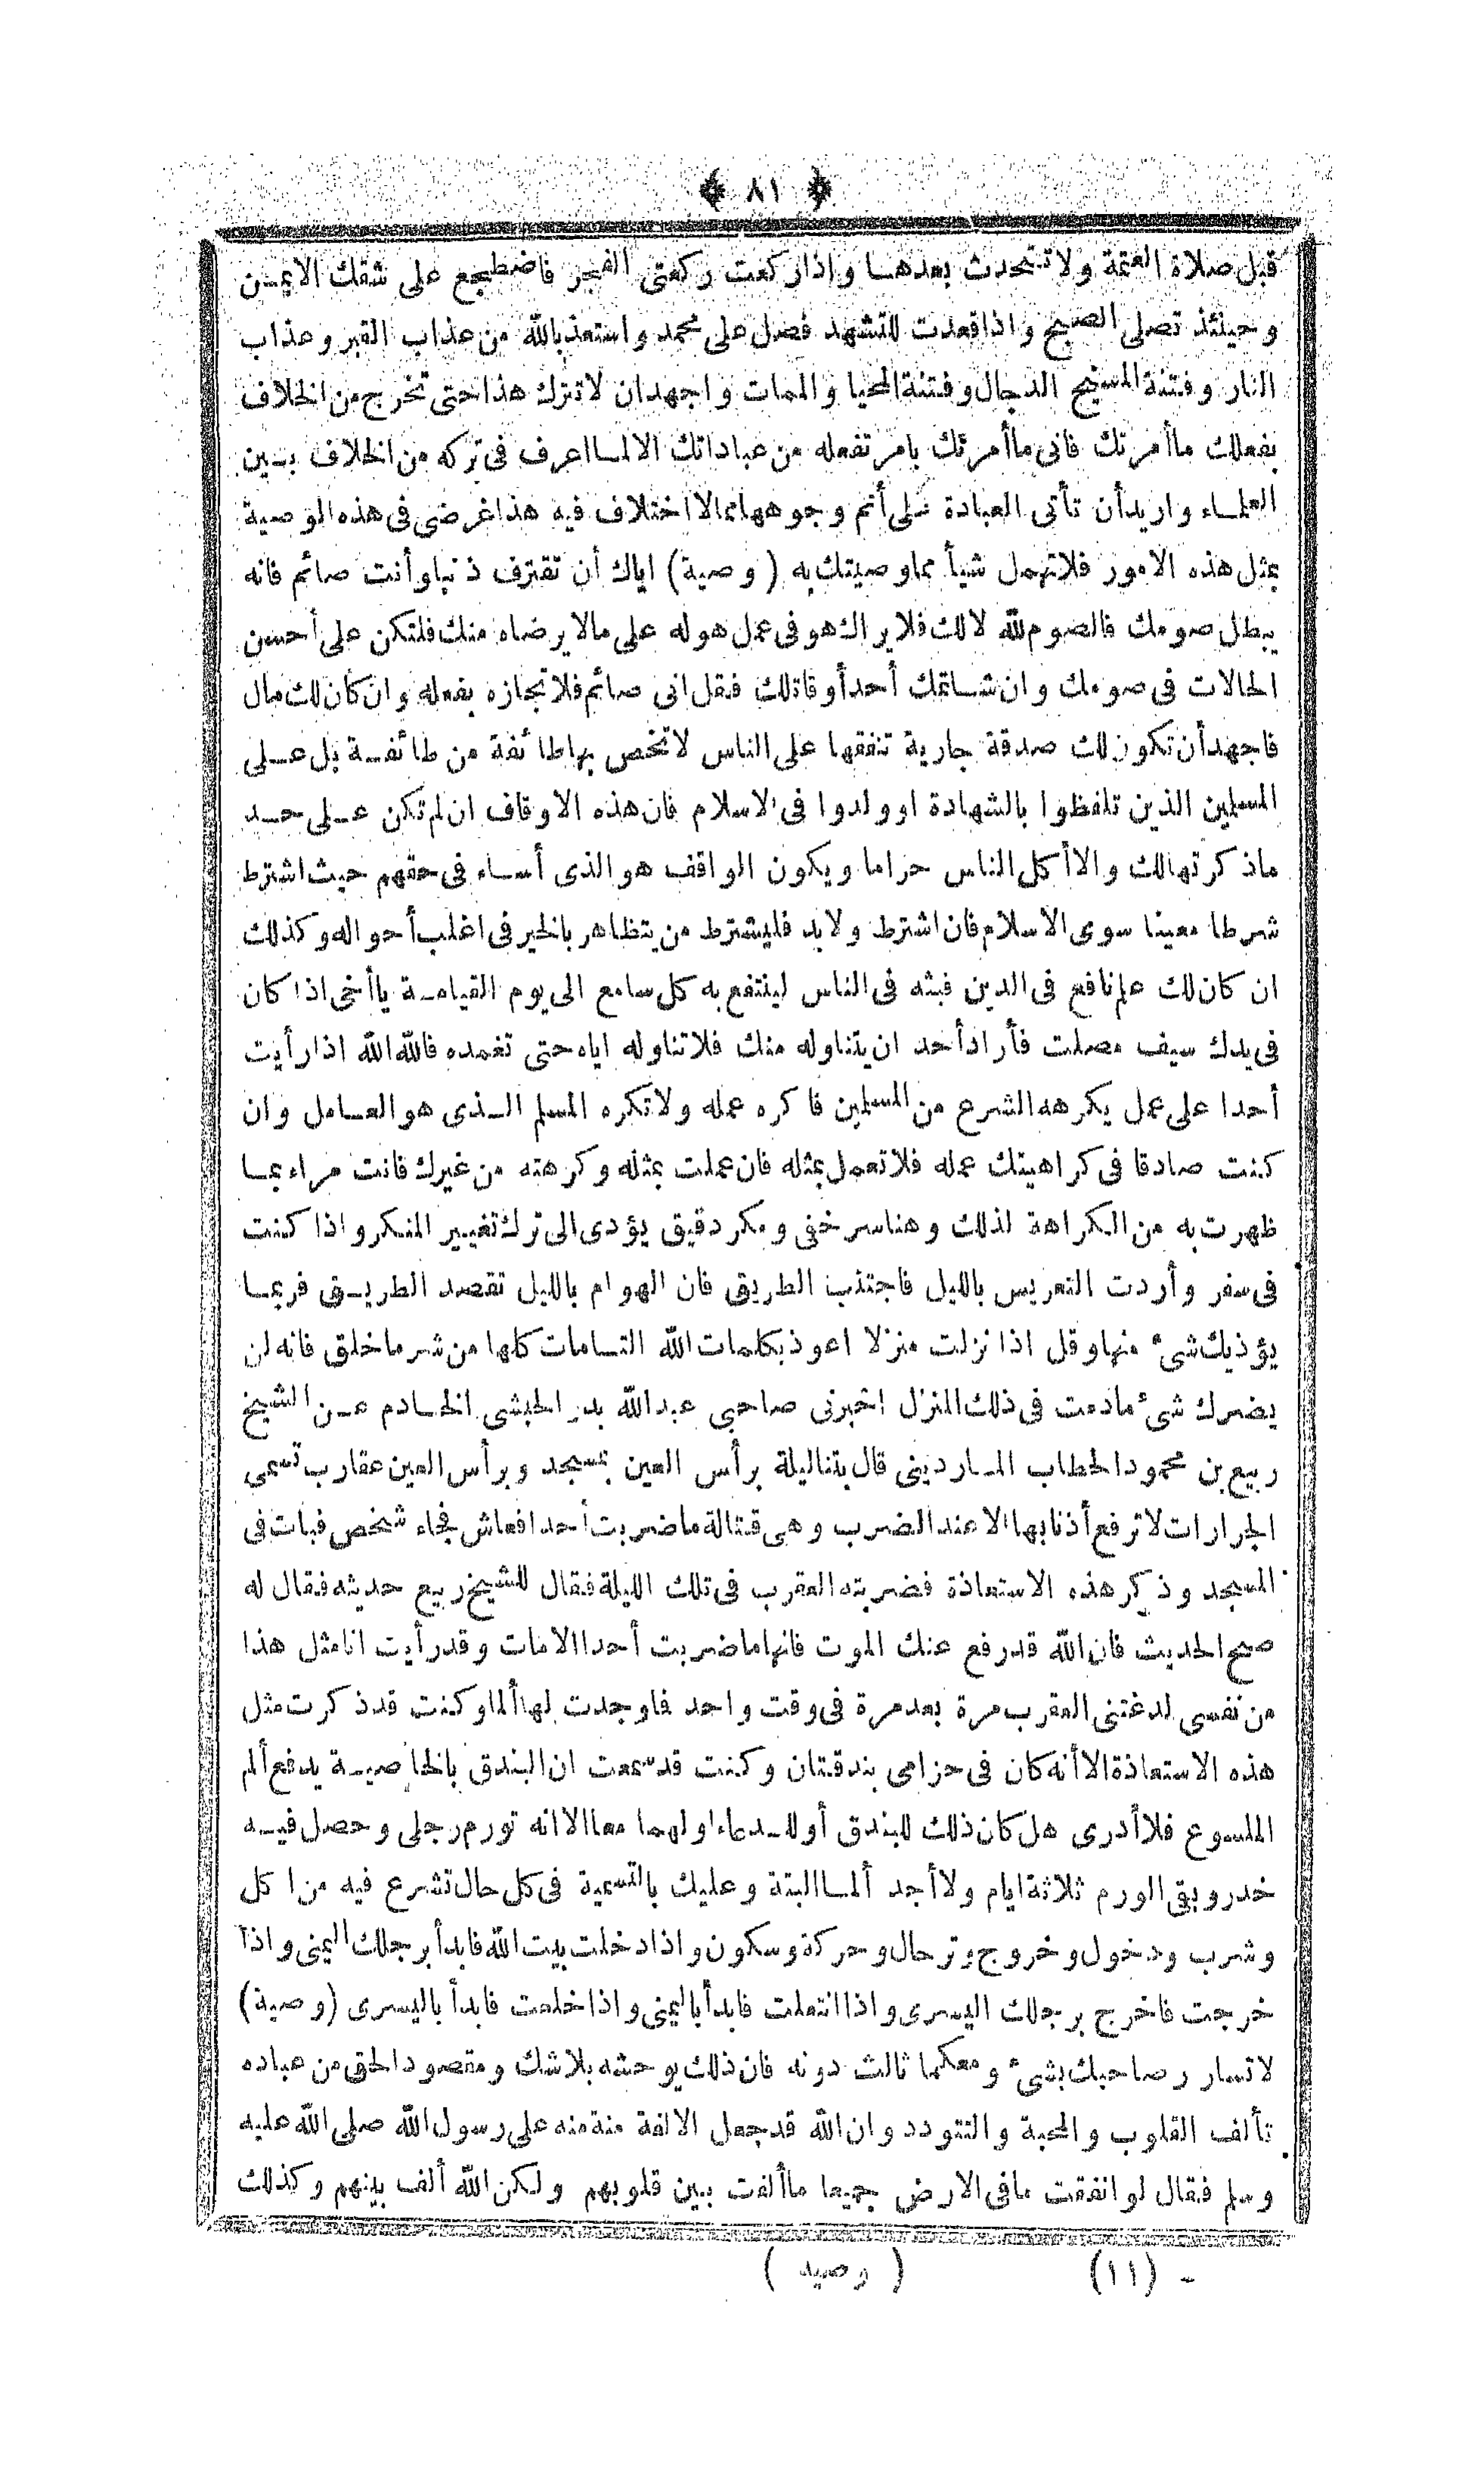 ﴿ ٨١ ﴾
قبل صلاة العتمة ولا تتحدث بعدها واذا ركعت ركعتى الفجر فاضطجع على شقك الايمن
وحينئذ تصلى الصبح واذا قعدت للتشهد فصل على محمد واستعذ بالله من عذاب القبر وعذاب
النار وفتنة المسيح الدجال وفتنة المحيا والممات واجهد ان لا تترك هذا حتى تخرج من الخلاف
بفعلك ما أمرتك فانى ما أمرتك بامر تفعله من عباداتك الا لما اعرف فى تركه من الخلاف بين
العلماء واريد أن تأتى العبادة على أتم وجوهها مما لا اختلاف فيه هذا غرضى فى هذه الوصية
بمثل هذه الامور فلا تهمل شيأ مما وصيتك به (وصية) اياك أن تقترف ذنبا وأنت صائم فانه
يبطل صومك فالصوم لله لا لك فلا يراك هو فى عمل هو له على ما لا يرضاه منك فلتكن على أحسن
الحالات فى صومك وان شاتمك أحد أو قاتلك فقل انى صائم فلا تجازه بفعله وان كان لك مال
فاجهد أن تكون لك صدقة جارية تنفقها على الناس لا تخص بها طائفة من طائفة بل على
المسلمين الذين تلفظوا بالشهادة او ولدوا فى الاسلام فان هذه الاوقاف ان لم تكن على حد
ما ذكرتها لك والا أكل الناس حراما ويكون الواقف هو الذى أساء فى حقهم حيث اشترط
شرطا معينا سوى الاسلام فان اشترط ولا بد فليشترط من يتظاهر بالخير فى اغلب أحواله وكذلك
ان كان لك علم نافع فى الدين فبثه فى الناس لينتفع به كل سامع الى يوم القيامة يا أخى اذا كان
فى يدك سيف مصلت فأراد أحد ان يتناوله منك فلا تناوله اياه حتى تغمده فالله الله اذا رأيت
أحدا على عمل يكرهه الشرع من المسلمين فاكره عمله ولا تكره المسلم الذى هو العامل وان
كنت صادقا فى كراهيتك عمله فلا تعمل بمثله فان عملت بمثله وكرهته من غيرك فانت مراء بما
ظهرت به من الكراهة لذلك وهنا سر خفى ومكر دقيق يؤدى الى ترك تغيير المنكر واذا كنت
فى سفر وأردت التعريس بالليل فاجتنب الطريق فان الهوام بالليل تقصد الطريق فربما
يؤذيك شئ منها وقل اذا نزلت منزلا اعوذ بكلمات الله التامات كلها من شر ما خلق فانه لن
يضرك شئ ما دمت فى ذلك المنزل اخبرنى صاحبى عبد الله بدر الحبشى الخادم عن الشيخ
ربيع بن محمود الحطاب الماردينى قال بتنا ليلة برأس العين بمسجد وبرأس العين عقارب تسمى
الجرارات لا ترفع أذنابها الا عند الضرب وهى قتالة ما ضربت أحدا فعاش فجاء شخص فبات فى
المسجد وذكر هذه الاستعاذة فضربته العقرب فى تلك الليلة فقال للشيخ ربيع حديثه فقال له
صح الحديث فان الله قد رفع عنك الموت فانها ما ضربت أحدا الا مات وقد رأيت انا مثل هذا
من نفسى لدغتنى العقرب مرة بعد مرة فى وقت واحد فما وجدت لها ألما وكنت قد ذكرت مثل
هذه الاستعاذة الا أنه كان فى حزامى بندقتان وكنت قد سمعت ان البندق بالخاصية يدفع ألم
الملسوع فلا أدرى هل كان ذلك للبندق أو للدعاء او لهما معا الا انه تورم رجلى وحصل فيه
خدر وبقى الورم ثلاثة ايام ولا أجد ألما البتة وعليك بالتسمية فى كل حال تشرع فيه من اكل
وشرب ودخول وخروج وترحال وحركة وسكون واذا دخلت بيت الله فابدأ برجلك اليمنى واذا
خرجت فاخرج برجلك اليسرى واذا انتعلت فابدأ باليمنى واذا خلعت فابدأ باليسرى (وصية)
لا تسارر صاحبك بشئ ومعكما ثالث دونه فان ذلك يوحشه بلا شك ومقصود الحق من عباده
تألف القلوب والمحبة والتودد وان الله قد جعل الالفة منة منه على رسول الله صلى الله عليه
وسلم فقال لو انفقت ما فى الارض جميعا ما ألفت بين قلوبهم ولكن الله ألف بينهم وكذلك
- (١١) (وصيه)